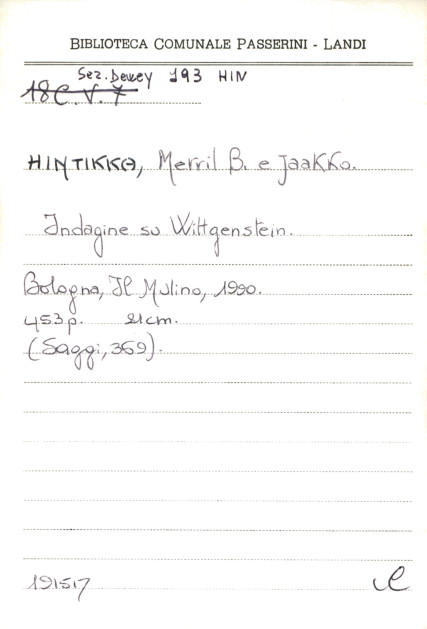 BIBLIOTECA COMUNALE PASSERINI - LANDI
Sez. Dewey 193 HIN
18 C. V. 7
HINTIKKA, Merril B. e Jaakko.
Indagine su Wittgenstein.
Bologna, Il Mulino, 1990.
453 p. 21 cm.
(Saggi, 369).
191517